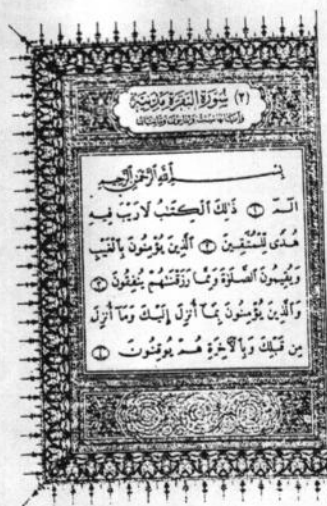 (٢) سُورَةُ الْبَقَرَةِ مَدَنِيَّة
وَآيَاتُهَا سِتٌّ وَثَمَانُونَ وَمِائَتَانِ
بِسْمِ ٱللَّهِ ٱلرَّحْمَٰنِ ٱلرَّحِيمِ
الٓمٓ ١ ذَٰلِكَ ٱلْكِتَٰبُ لَا رَيْبَ فِيهِ
هُدًى لِّلْمُتَّقِينَ ٢ ٱلَّذِينَ يُؤْمِنُونَ بِٱلْغَيْبِ
وَيُقِيمُونَ ٱلصَّلَوٰةَ وَمِمَّا رَزَقْنَٰهُمْ يُنفِقُونَ ٣
وَٱلَّذِينَ يُؤْمِنُونَ بِمَآ أُنزِلَ إِلَيْكَ وَمَآ أُنزِلَ
مِن قَبْلِكَ وَبِٱلْآخِرَةِ هُمْ يُوقِنُونَ ٤